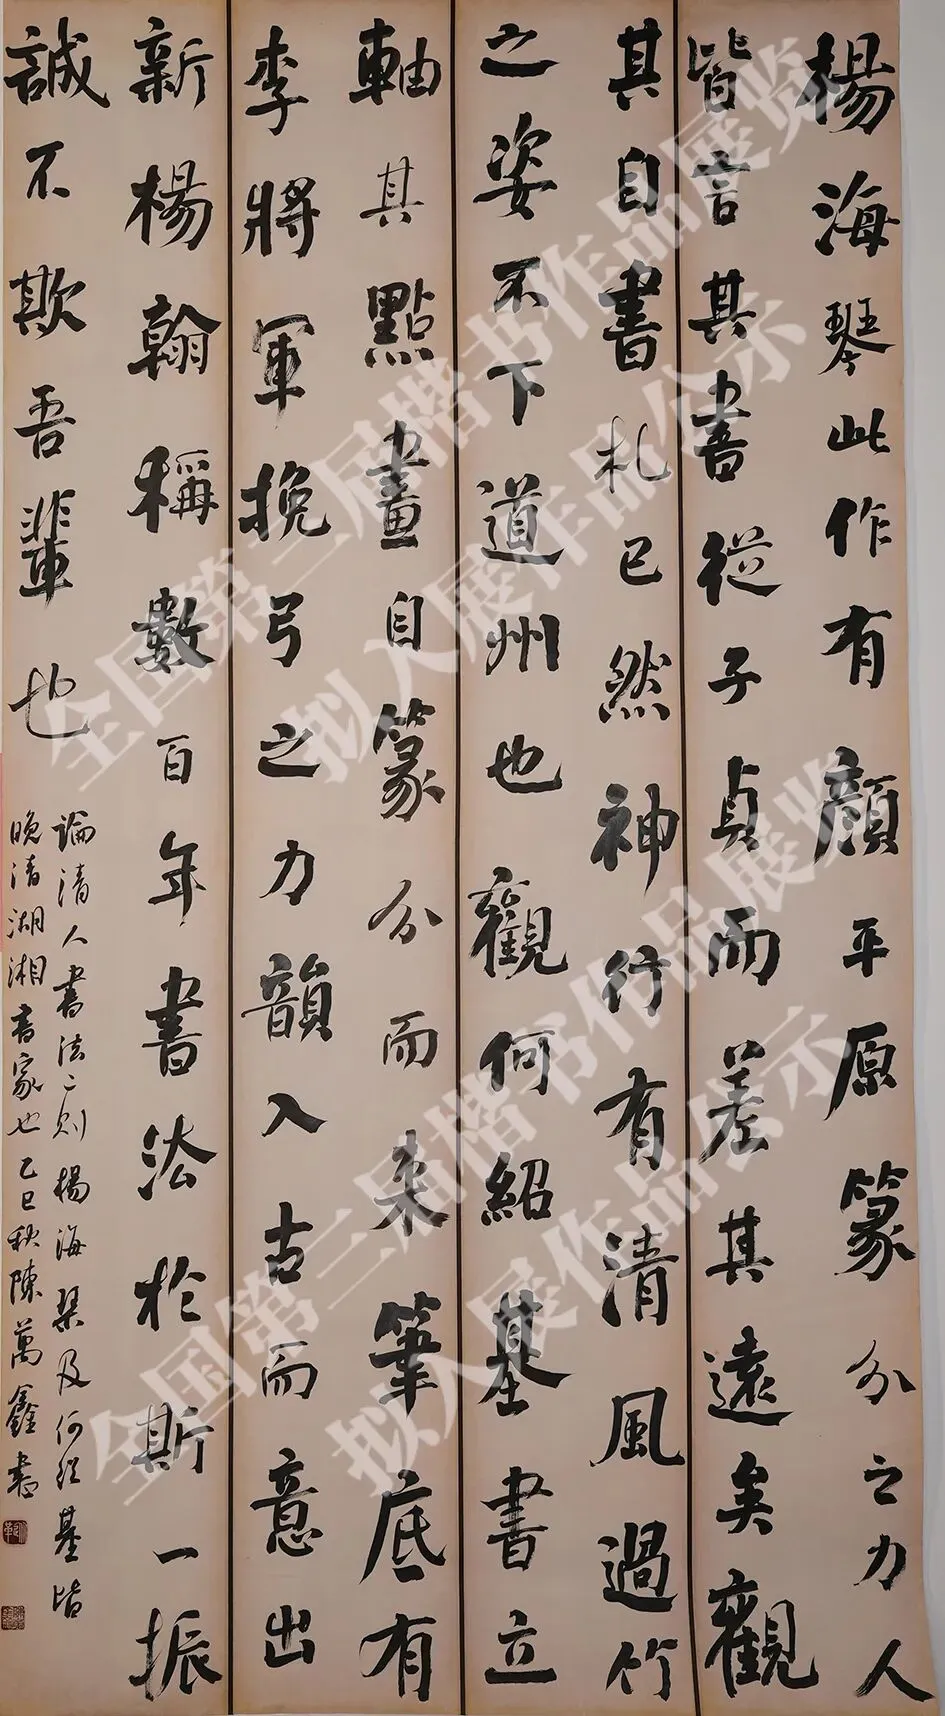 楊海琴此作有顏平原篆分之力人
皆言其書從子貞而差其遠矣觀
其自書札已然神行有清風過竹
之姿不下道州也觀何紹基書立
軸其點畫自篆分而来筆底有
李將軍挽弓之力韻入古而意出
新楊翰稱數百年書法於斯一振
誠不欺吾輩也
論清人書法二則楊海琴及何紹基皆
晚清湖湘書家也乙巳秋陳萬鑫書
全国第三届楷书作品展览
拟入展作品公示
全国第三届楷书作品展览
拟入展作品公示